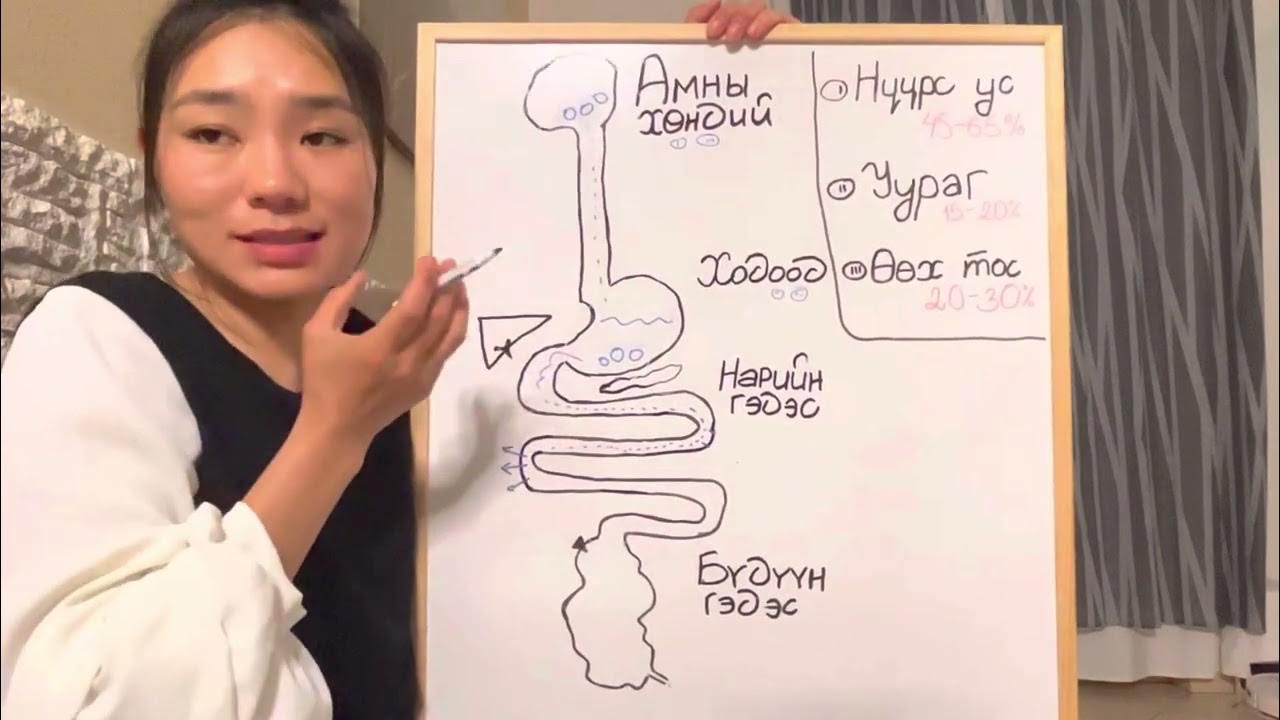 Амны
хөндий
I II
Ходоод
Нарийн
гэдэс
Бүдүүн
гэдэс
I Нүүрс ус
45-65%
II Уураг
15-20%
III Өөх тос
20-30%